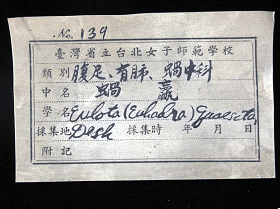 No. 139
臺灣省立台北女子師範學校
類別 腹足、有肺、蝸牛科
中名 蝸 蠃
學名 Eulota (Euhadra) Quaesita,
採集地 Desh 採集時 年 月 日
附記